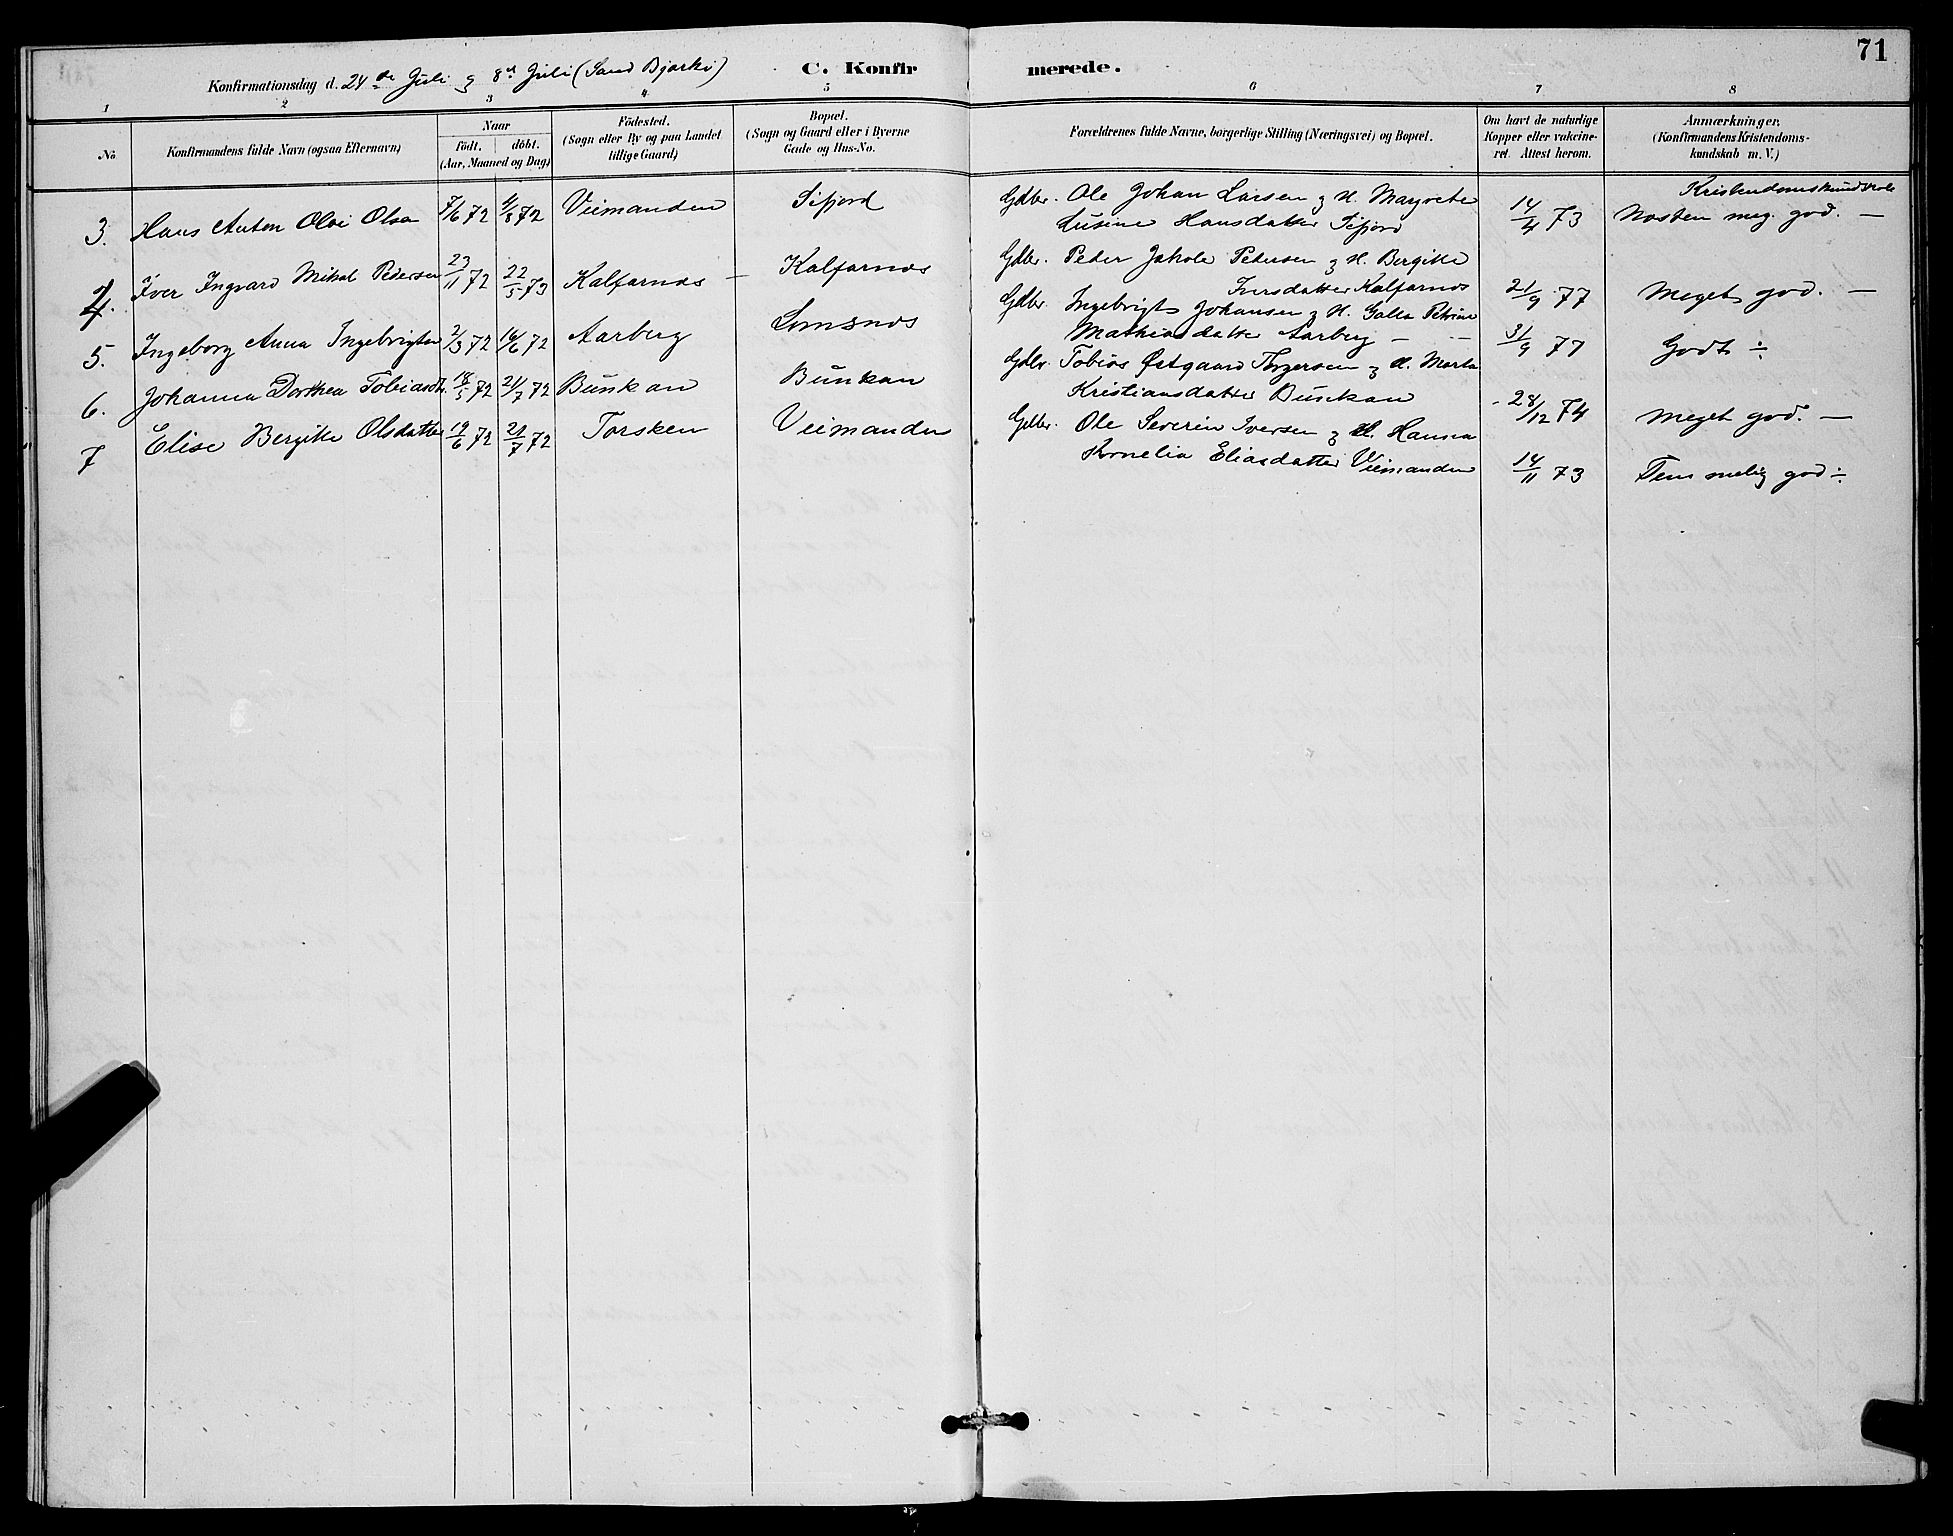 71
Konfirmationsdag d. 24de Juli og 8de Juli (Sand Bjarkø)
C. Konfirmerede.
1 2 3 4 5 6 7 8
No
Konfirmandens fulde Navn (ogsaa Efternavn)
Naar
født. døbt.
(Aar, Maaned og Dag)
Födested.
(Sogn eller By og paa Landet
tillige Gaard)
Bopæl.
(Sogn og Gaard eller i Byerne
Gade og Hus-No.
Forældrenes fulde Navne, borgerlige Stilling (Næringsvei) og Bopæl.
Om havt de naturlige
Kopper eller vakcine-
ret. Attest herom.
Anmærkninger.
(Konfirmandens Kristendoms-
kundskab m. V.)
3. Hans Anton Olai Olsen 7/6 72 4/8 72 Veimanden Sifjord Gdbr. Ole Johan Larsen og H. Margrete
Lusine Hansdatter Sifjord 14/4 73 Kristendomskundskab
Næsten meg. god. —
4. Iver Ingvard Mikal Pedersen 23/11 72 22/5 73 Kalfarnæs — Kalfarnæs Gdbr. Peder Jakob Pedersen og H. Bergitte
Iversdatter Kalfarnæs 21/9 77 Meget god. —
5. Ingeborg Anna Ingebrigtsen 2/3 72 16/6 72 Aarberg Lemsnes Gdbr. Ingebrigt Johansen og H. Galla Petrine
Mathiasdatter Aarberg — — 31/9 77 Godt ÷
6. Johanna Dorthea Tobiasdt. 18/5 72 21/7 72 Bunkan Bunkan Gdbr. Tobias Østgaard Torgersen og H. Marta
Kristiansdatter Bunkan 28/12 74 Meget god. —
7 Elise Bergitte Olsdatter 19/6 72 21/7 72 Torsken Veimanden Gdbr. Ole Severin Iversen og H. Hanna
Kornelia Eliasdatter Veimanden 14/11 73 Temmelig god ÷